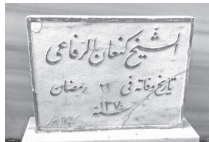 الشيخ كنعان الرفاعي
تاريخ وفاته في ٢٢ رمضان
سنة ١٣٧٠